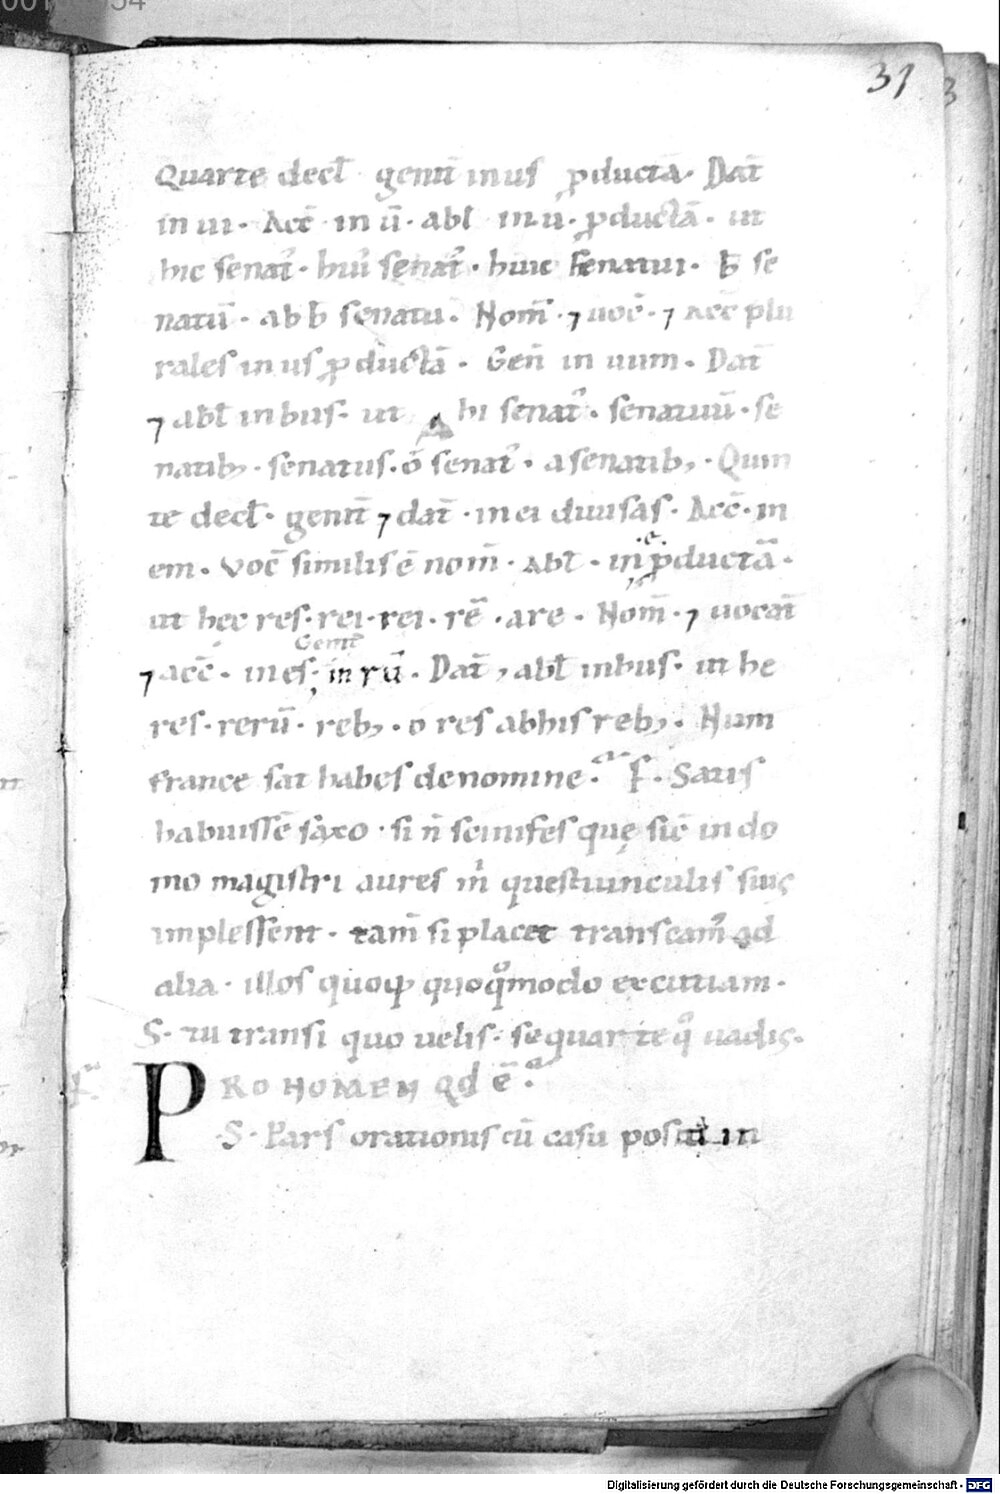 31
Quarte decl̄ genit̄ in us ꝓductā. Dat̄
in ui. Acc̄ in ū. abl in u. ꝓductā. ut
hic senat᷒. hui᷒ senat᷒. huic senatui. h̄ se
natū. ab h̄ senatu. Nom̄. ⁊ uoc̄. ⁊ Acc̄ plu
rales in us ꝓductā. Gen̄ in uum. Dat̄
⁊ abl̄ in bus. ut hi senat᷒. senatuū. se
natib;. senatus. ō senat᷒. a senatib;. Quin
te decl̄. genit̄ ⁊ dat̄. in ei diuisas. Acc̄. in
em. Voc̄ similis ē nom̄. Abl̄. in .e. ꝓductā.
ut hec res. rei. rei. rē. a re. Nom̄. ⁊ uocat̄
Genit̄
⁊ acc̄. in es. in rū. Dat̄, abl̄ in bus. ut he
res. rerū. reb;. o res ab his reb;. Num
france sat habes de nomine. F. Satis
habuissē saxo. si n̄ semises quę sic̄ in do
mo magistri aures m̍ questiunculis suis
implessent. tam̄ si placet transeam᷒ ad
alia. illos quoq; quoqͦmodo excutiam.
S. tu transi quo uelis. sequar te qͦ uadis.
PRONOMEN qd ē.
S. Pars orationis cū casu posita in
Digitalisierung gefördert durch die Deutsche Forschungsgemeinschaft - DFG